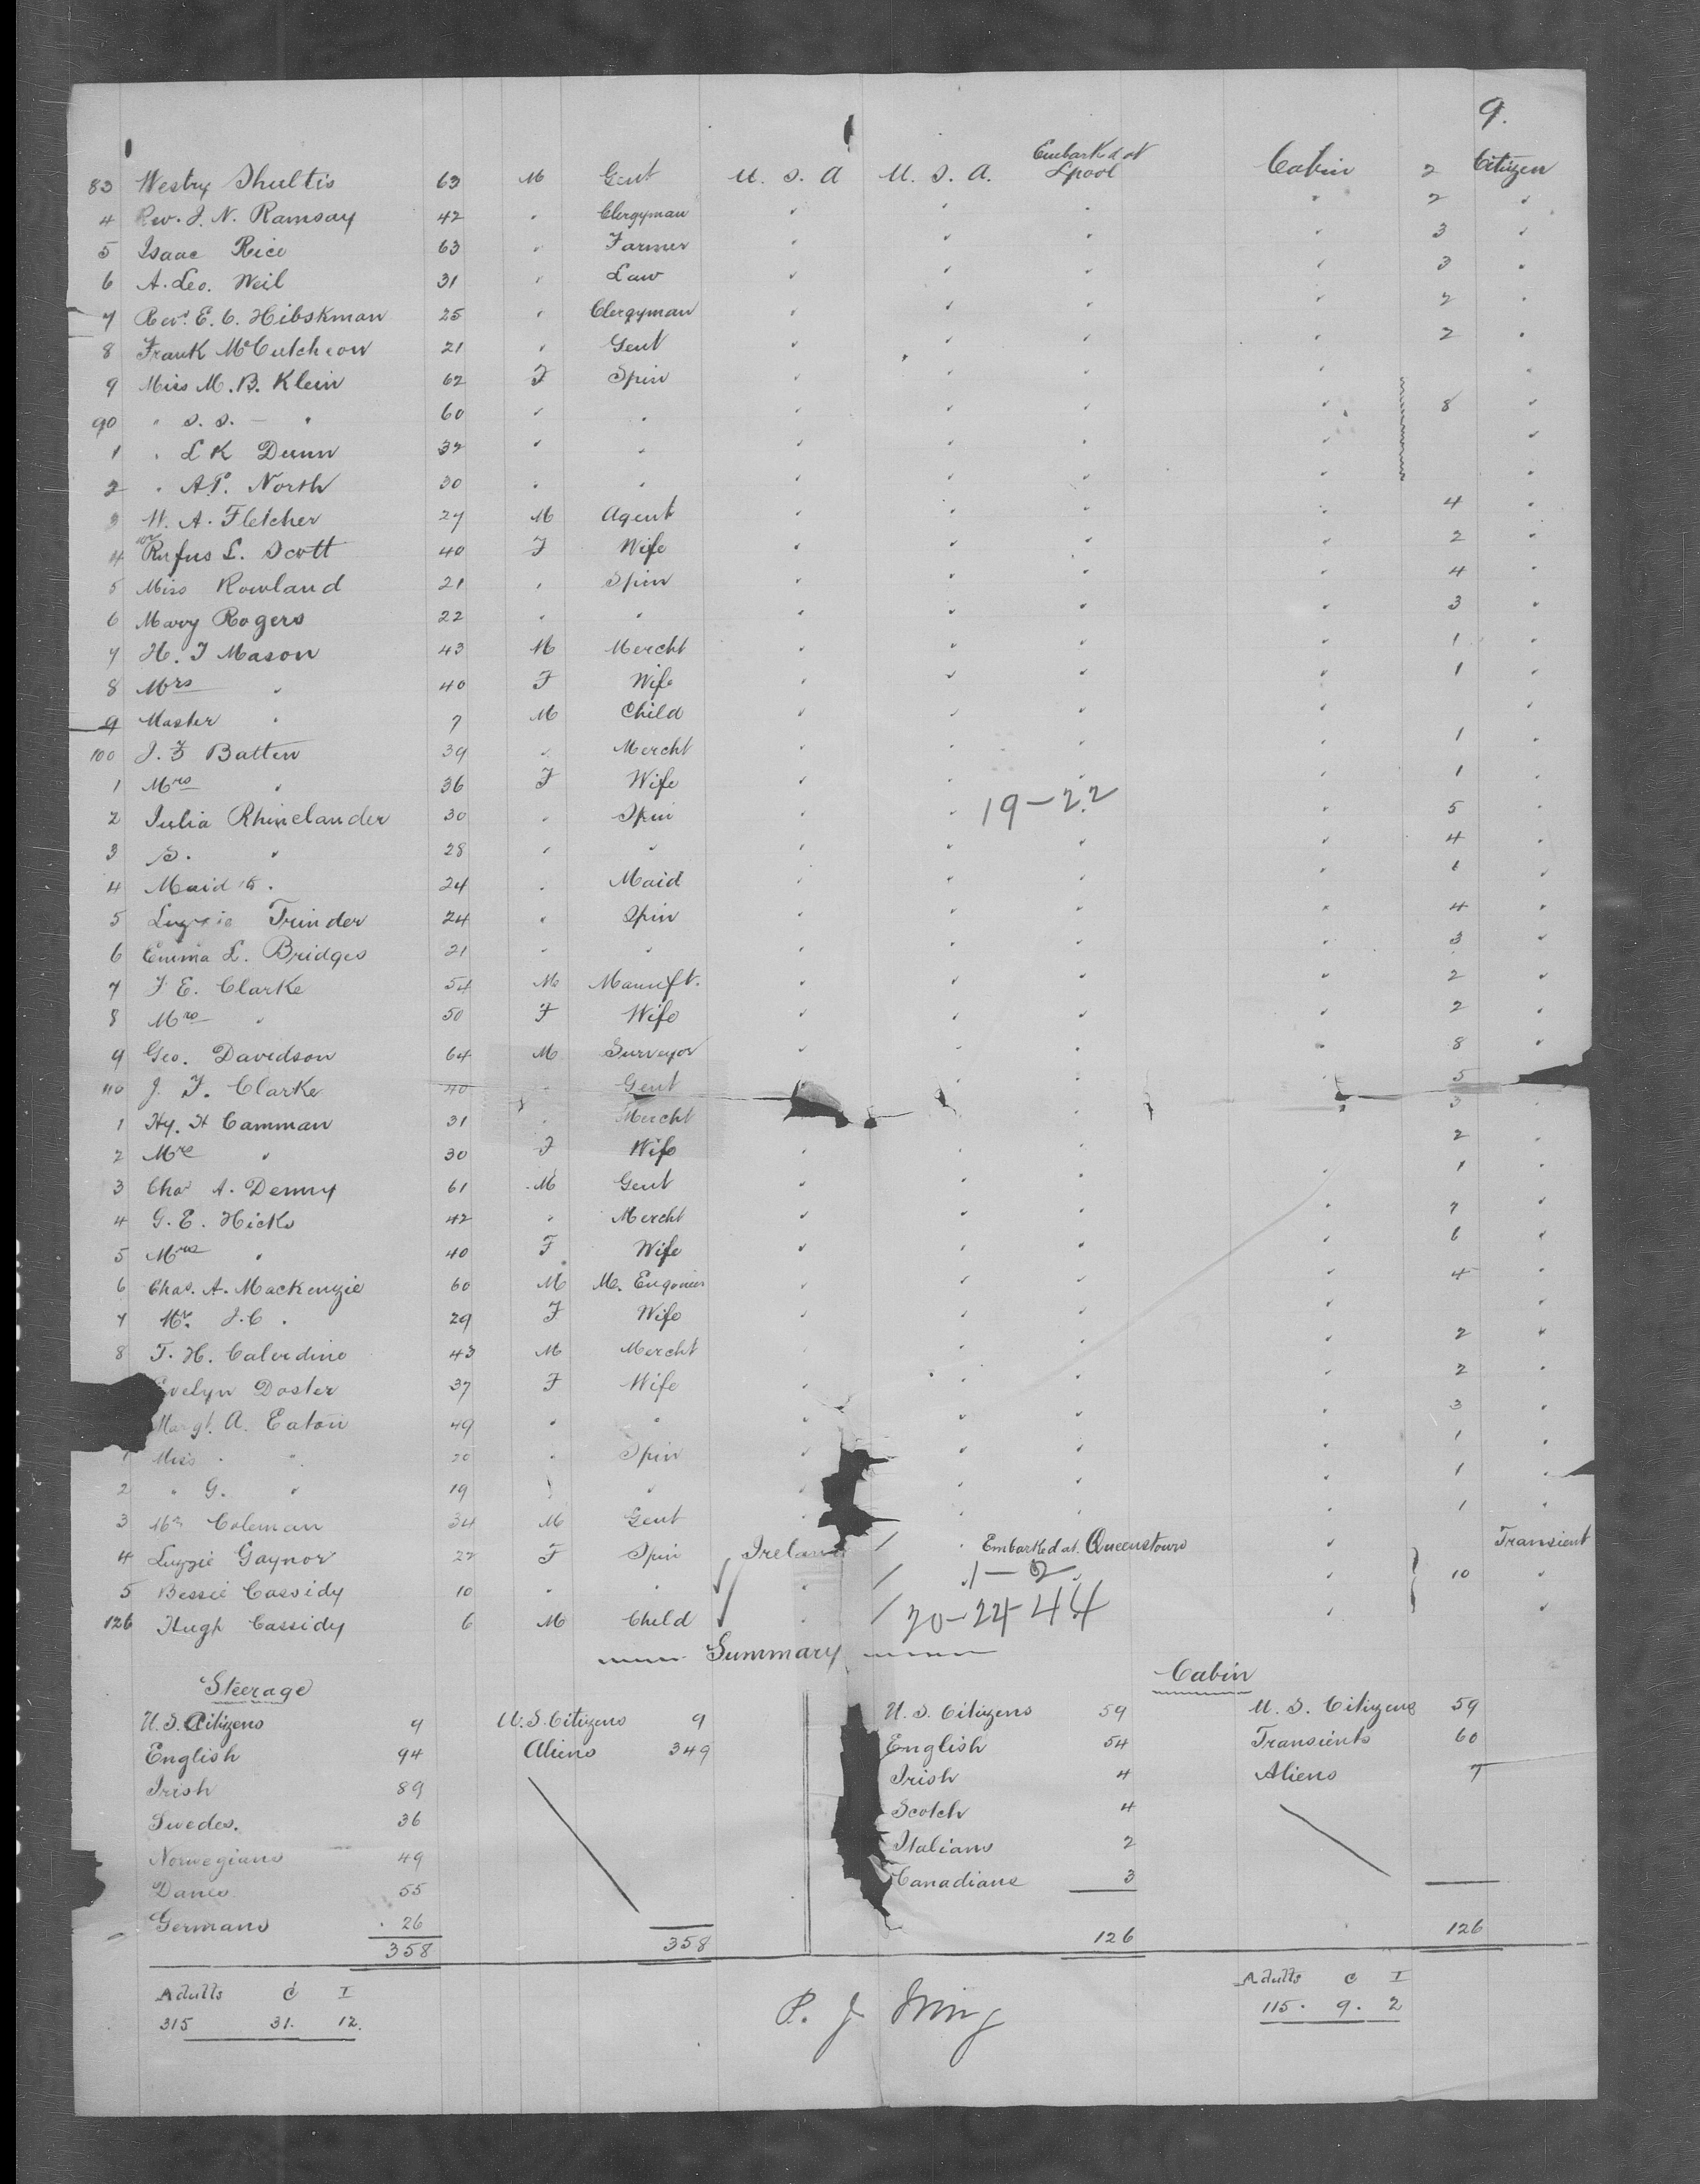 9.
83 Westry Shultis 63 M Gent U. S. A U. S. A. Embarked at Lpool Cabin 2 Citizen
4 Rev. J. N. Ramsay 42 " Clergyman " " " " 2 "
5 Isaac Rice 63 " Farmer " " " " 3 "
6 A. Leo. Weil 31 " Law " " " " 3 "
7 Revd. E. C. Hibskman 25 " Clergyman " " " " 2 "
8 Frank McCutcheon 21 " Gent " " " " 2 "
9 Miss M. B. Klein 62 F Spin " " " " "
90 " S. S. — " 60 " " " " " " 8 "
1 " L K Dunn 32 " " " " " " "
2 " A. P. North 30 " " " " " " "
3 W. A. Fletcher 27 M Agent " " " " 4 "
4 Rufus L. Scott 40 F Wife " " " " 2 "
5 Miss Rowland 21 " Spin " " " " 4 "
6 Mary Rogers 22 " " " " " " 3 "
7 H. J Mason 43 M Mercht " " " " 1 "
8 Mrs " 40 F Wife " " " " 1 "
9 Master " 7 M Child " " " " "
100 J. Z Batten 39 " Mercht " " " " 1 "
1 Mrs " 36 F Wife " " " " 1 "
2 Julia Rhinelander 30 " Spin " " 19-22 " 5 "
3 S. " 28 " " " " " " 4 "
4 Maid to. 24 " Maid " " " " 1 "
5 Luzzie Trinder 24 " Spin " " " " 4 "
6 Emma L. Bridges 21 " " " " " " 3 "
7 J E. Clarke 54 M Manuft. " " " " 2 "
8 Mrs " 50 F Wife " " " " 2 "
9 Geo. Davidson 64 M Surveyor " " " " 8 "
110 J. F. Clarke 40 " Gent " " " 5
1 Hy. H Camman 31 " Mercht " 3 "
2 Mrs " 30 F Wife " " " 2 "
3 Chas A. Denny 61 M Gent " " " " 1 "
4 G. E. Hicks 42 " Mercht " " " " 7 "
5 Mrs " 40 F Wife " " " " 6 "
6 Chas. A. Mackenzie 60 M M. Engineer " " " " 4 "
7 Mr. J. C. 29 F Wife " " " " "
8 T. H. Calverdine 43 M Mercht " " " " 2 "
Evelyn Doster 37 F Wife " " " " 2 "
Margt. A. Eaton 49 " " " " " " 3 "
1 Miss " " 20 " Spin " " " " 1 "
2 " G. " 19 " " " " " " 1 "
3 Mr Coleman 34 M Gent " " " " 1 "
4 Luzzie Gaynor 22 F Spin Ireland / " Embarked at Queenstown " Transient
5 Bessie Cassidy 10 " " " / 1-2 " 10 "
126 Hugh Cassidy 6 M Child " / 20-22-44 " "
Summary
Steerage Cabin
U. S. Citizens 9 U. S. Citizens 9 U. S. Citizens 59 U. S. Citizens 59
English 94 Aliens 349 English 54 Transients 60
Irish 89 Irish 4 Aliens 7
Swedes. 36 Scotch 4
Norwegians 49 Italians 2
Danes 55 Canadians 3
Germans 26
358 358 126 126
Adults C I Adults C I
315 31. 12. 115. 9. 2
P. J Irving